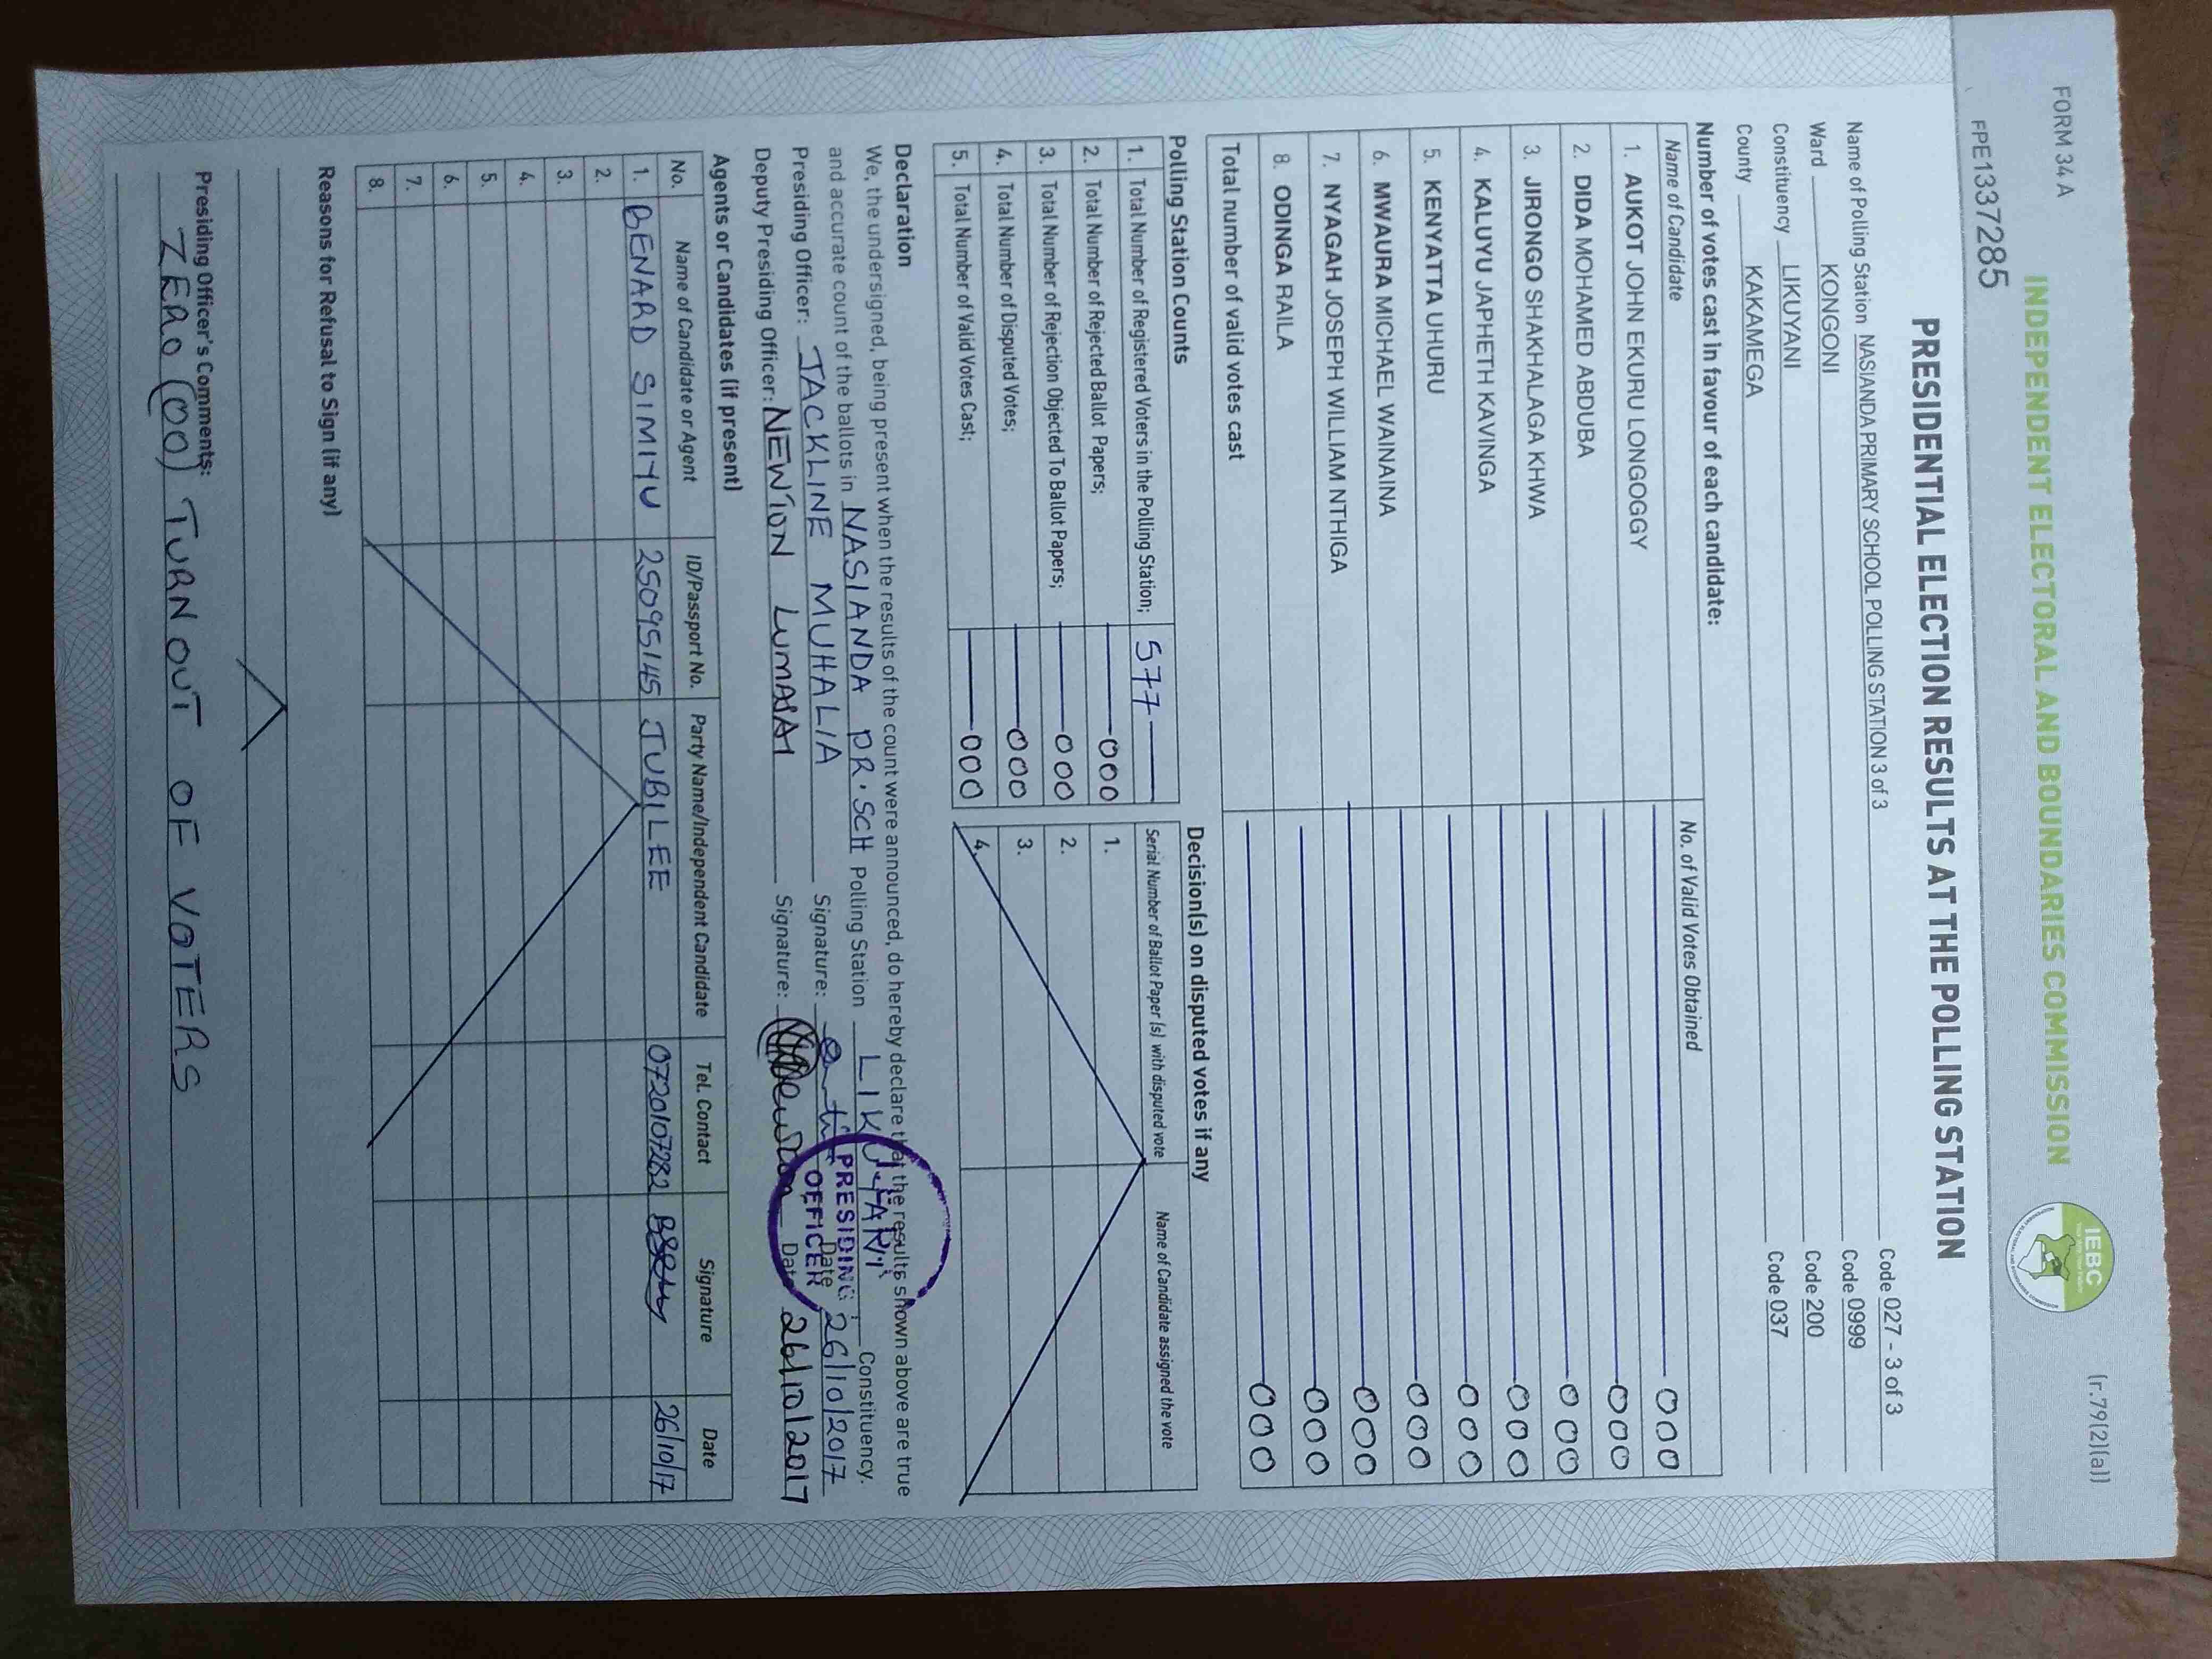 FORM 34 A
(r.79(2)(a))
INDEPENDENT ELECTORAL AND BOUNDARIES COMMISSION
IEBC
FPE1337285
PRESIDENTIAL ELECTION RESULTS AT THE POLLING STATION
Name of Polling Station NASIANDA PRIMARY SCHOOL POLLING STATION 3 of 3 Code 027 - 3 of 3
Ward KONGONI Code 0999
Constituency LIKUYANI Code 200
County KAKAMEGA Code 037
Number of votes cast in favour of each candidate:
Name of Candidate No. of Valid Votes Obtained
1. AUKOT JOHN EKURU LONGOGGY 000
2. DIDA MOHAMED ABDUBA 000
3. JIRONGO SHAKHALAGA KHWA 000
4. KALUYU JAPHETH KAVINGA 000
5. KENYATTA UHURU 000
6. MWAURA MICHAEL WAINAINA 000
7. NYAGAH JOSEPH WILLIAM NTHIGA 000
8. ODINGA RAILA 000
Total number of valid votes cast 000
Polling Station Counts
1. Total Number of Registered Voters in the Polling Station; 577
2. Total Number of Rejected Ballot Papers; 000
3. Total Number of Rejection Objected To Ballot Papers; 000
4. Total Number of Disputed Votes; 000
5. Total Number of Valid Votes Cast; 000
Decision(s) on disputed votes if any
Serial Number of Ballot Paper (s) with disputed vote Name of Candidate assigned the vote
1.
2.
3.
4.
Declaration
We, the undersigned, being present when the results of the count were announced, do hereby declare that the results shown above are true
and accurate count of the ballots in NASIANDA PR. SCH Polling Station LIKUYANI Constituency.
Presiding Officer: JACKLINE MUHALIA Signature: Date 26/10/2017
Deputy Presiding Officer: NEWTON LUMASAI Signature: Date 26/10/2017
PRESIDING
OFFICER
Agents or Candidates (if present)
No. Name of Candidate or Agent ID/Passport No. Party Name/Independent Candidate Tel. Contact Signature Date
1. BENARD SIMIYU 25095145 JUBILEE 0720107282 26/10/17
2.
3.
4.
5.
6.
7.
8.
Reasons for Refusal to Sign (if any)
Presiding Officer's Comments:
ZERO (00) TURNOUT OF VOTERS